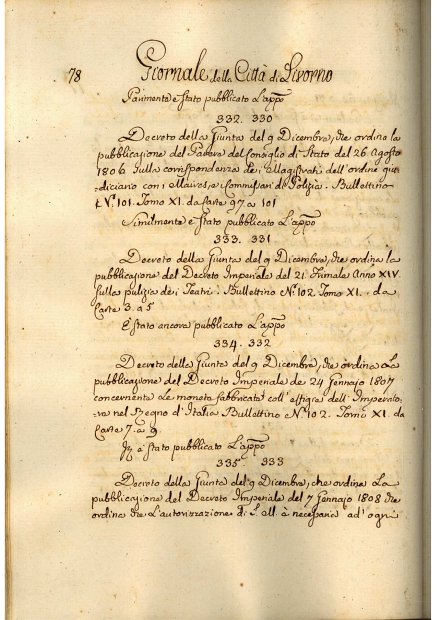 78 Giornale della Città di Livorno
Parimente è stato pubblicato L'appo
332. 330
Decreto della Giunta del 9 Dicembre, che ordina la
pubblicazione del Parere del Consiglio di Stato del 26 Agosto
1806 sulla corrispondenza dei Magistrati dell'ordine giu-
-diciario con i Maires, e Commissari di Polizia. Bullettino
N.º 101. Tomo XI. da Carte 97 a 101
Similmente è stato pubblicato L'appo
333. 331
Decreto della Giunta del 9 Dicembre, che ordina la
pubblicazione del Decreto Imperiale del 21. Frimale Anno XIV.
sulla pulizia dei Teatri. Bullettino Nº. 102. Tomo XI. da
Carte 3. a 5
È stato ancora pubblicato L'appo
334. 332
Decreto della Giunta del 9 Dicembre, che ordina La
pubblicazione del Decreto Imperiale de 24 Gennajo 1807
concernente Le monete fabbricate coll'effigie dell'Imperato-
-re nel Regno d'Italia Bullettino Nº. 102. Tomo XI. da
Carte 7. a 9
è stato pubblicato L'appo
335. 333
Decreto della Giunta del 9 Dicembre, che ordina La
pubblicazione del Decreto Imperiale del 7 Gennajo 1808 che
ordina che L'autorizzazione di S. M. è necessaria ad'ogni